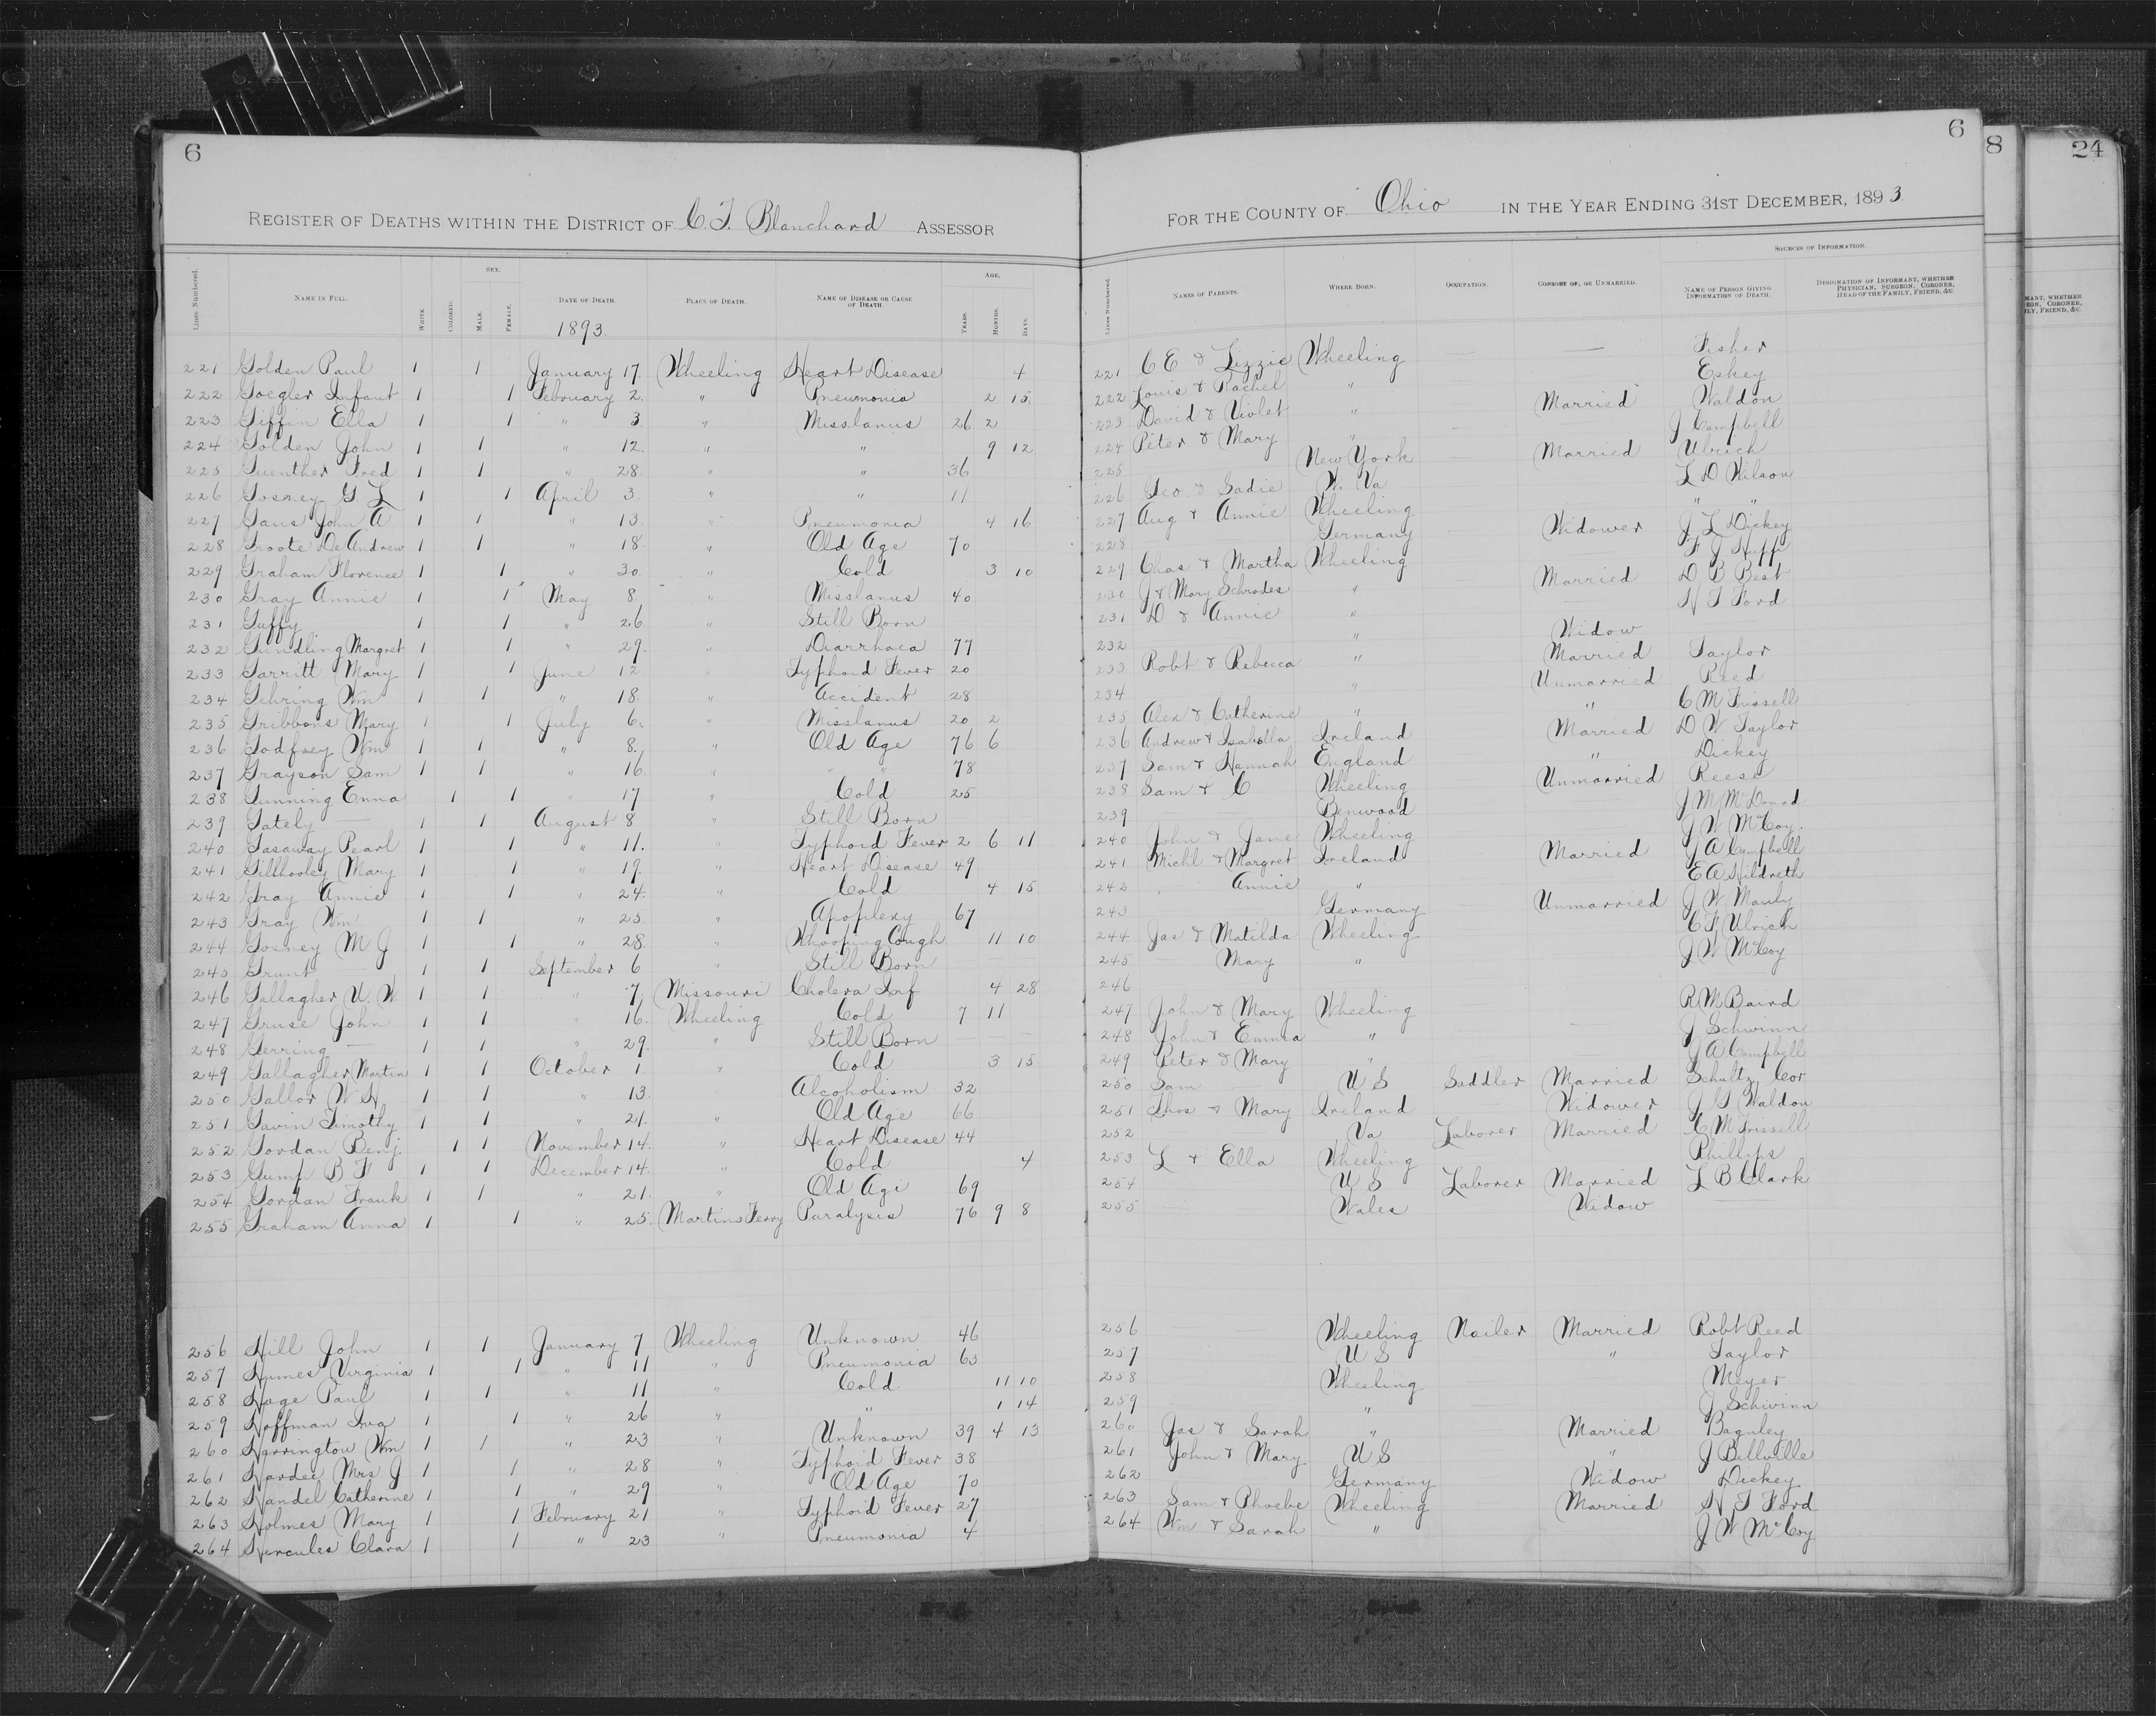 6
REGISTER OF DEATHS WITHIN THE DISTRICT OF C. T. Blanchard ASSESSOR
Lines Numbered. NAME IN FULL. WHITE. COLORED. SEX. MALE. FEMALE. DATE OF DEATH. PLACE OF DEATH. NAME OF DISEASE OR CAUSE OF DEATH. AGE. YEARS. MONTHS. DAYS.
1893.
221 Golden Paul 1 1 January 17. Wheeling Heart Disease 4
222 Goegler Infant 1 1 February 2. " Pneumonia 2 15.
223 Giffin Ella 1 1 " 3 " Misslanus 26 2
224 Golden John 1 1 " 12. " " 9 12
225 Guenther Fred 1 1 " 28. " " 36
226 Gosney G L 1 1 April 3. " " 11
227 Gans John A 1 1 " 13. " Pneumonia 4 16
228 Groote De Andrew 1 1 " 18. " Old Age 70
229 Graham Florence 1 1 " 30. " Cold 3 10
230 Gray Annie 1 1 May 8. " Misslanus 40
231 Guffy 1 1 " 26. " Still Born
232 Gundling Margret 1 1 " 29. " Diarrhoea 77
233 Garritt Mary 1 1 June 12 " Typhoid Fever 20
234 Gehring Wm 1 1 " 18. " Accident 28
235 Gribbons Mary 1 1 July 6. " Misslanus 20 2
236 Godfrey Wm 1 1 " 8. " Old Age 76 6
237 Grayson Sam 1 1 " 16. " " " 78
238 Gunning Enna 1 1 " 17 " Cold 25
239 Gately — 1 1 August 8 " Still Born
240 Gasaway Pearl 1 1 " 11. " Typhoid Fever 2 6 11
241 Gillhooley Mary 1 1 " 19. " Heart Disease 49
242 Gray Annie 1 1 " 24. " Cold 4 15
243 Gray Wm 1 1 " 25. " Apoplexy 67
244 Gosney M J 1 1 " 28. " Whooping Cough 11 10
245 Grunt — 1 1 September 6 " Still Born
246 Gallagher U. W. 1 1 " 7 Missouri Cholera Inf 4 28
247 Gruse John 1 1 " 16. Wheeling Cold 7 11
248 Gerring — 1 1 " 29. " Still Born
249 Gallagher Martin 1 1 October 1. " Cold 3 15
250 Gallor W H 1 1 " 13. Alcoholism 32
251 Gavin Timothy 1 1 " 21. " Old Age 66
252 Gordan Benj. 1 1 November 14. " Heart Disease 44
253 Gump B F 1 1 December 14. " Cold 4
254 Gordan Frank 1 1 " 21. " Old Age 69
255 Graham Anna 1 1 " 25. Martins Ferry Paralysis 76 9 8
256 Hill John 1 1 January 7 Wheeling Unknown 46
257 Humes Virginia 1 1 " 11 " Pneumonia 63
258 Hage Paul 1 1 " 11 " Cold 11 10
259 Hoffman Iva 1 1 " 26 " " 1 14
260 Harrington Wm 1 1 " 23 " Unknown 39 4 13
261 Hardee Mrs J 1 1 " 28 " Typhoid Fever 38
262 Handel Catherine 1 1 " 29 " Old Age 70
263 Holmes Mary 1 1 February 21 " Typhoid Fever 27
264 Hercules Clara 1 1 " 23 Pneumonia 4
6
FOR THE COUNTY OF Ohio IN THE YEAR ENDING 31ST DECEMBER, 1893
Lines Numbered. NAMES OF PARENTS. WHERE BORN. OCCUPATION. CONSORT OF, OR UNMARRIED. SOURCES OF INFORMATION. NAME OF PERSON GIVING INFORMATION OF DEATH. DESIGNATION OF INFORMANT, WHETHER PHYSICIAN, SURGEON, CORONER, HEAD OF THE FAMILY, FRIEND, &C.
221 C E & Lizzie Wheeling — — Fisher
222 Louis & Rachel " Eskey
223 David & Violet " Married Waldon
224 Peter & Mary " J Campbell
225 New York Married Ulrich
226 Geo & Sadie W. Va L D Wilson
227 Aug & Annie Wheeling " "
228 Germany Widower J L Dickey
229 Chas & Martha Wheeling F J Huff
230 J & Mary Schrodes " Married D B Best
231 D & Annie " H T Ford
232 " Widow
233 Robt & Rebecca " Married Taylor
234 " Unmarried Reed
235 Alex & Catherine " " C M Frissell
236 Andrew & Isabella Ireland Married D W Taylor
237 Sam & Hannah England " Dickey
238 Sam & C Wheeling Unmarried Reese
239 Benwood J M McDonad
240 John & Jane Wheeling J W McCoy.
241 Michl & Margret Ireland Married J A Campbell
242 Annie " E A Hildreth
243 Germany Unmarried J W Manly
244 Jas & Matilda Wheeling C F Ulrich
245 Mary " J W McCoy
246
247 John & Mary Wheeling R M Baird
248 John & Emma " J Schwinn
249 Peter & Mary " J A Campbell
250 Sam U S Saddler Married Schultz Cor
251 Thos & Mary Ireland Widower J G Waldon
252 Va Laborer Married C M Frissell
253 L & Ella Wheeling Phillips
254 U S Laborer Married L B Clark
255 Wales Widow
256 Wheeling Nailer Married Robt Reed
257 U S " Taylor
258 Wheeling Meyer
259 " J Schwinn
260 Jas & Sarah " Married Baguley
261 John & Mary U S " J Bellville
262 Germany Widow Dickey
263 Sam & Phoebe Wheeling Married H T Ford
264 Wm & Sarah " J W McCoy
8
24
MANT, WHETHER
EON, CORONER,
ILY, FRIEND, &C.